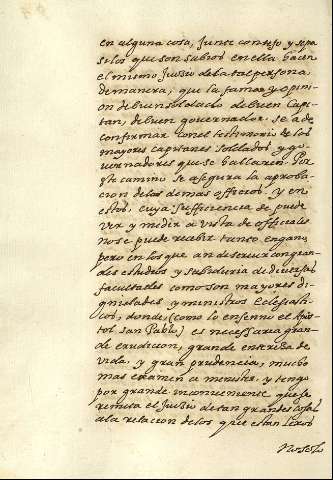 en alguna cosa, junte consejo y sepa
si los que son sabios en ella hacen
el mismo juizio de la tal persona,
de manera, que la fama y opini
on de buen soldado, de buen Capi
tan, de buen governador. se a de
confirmar con el testimonio de los
mayores capitanes soldados y go
vernadores que se hallaren. Por
este camino se asegura la aprobа
cion de los demas officios y en
estos, cuya sufficiencia se puede
ver y medir a vista de officiales
no se puede recibir tanto engano,
pero en los que an de servir con gran
des estudios y sabiduria de diversas
facultades como son mayores di
gnidades y ministros Ecclesiasti
cos, donde (como lo enseño el Apos
tol san Pablo) es necessaria gran
de erudicion, grande entereza de
vida, y gran prudencia, mucho
mas examen a menester, y tengo
por grande inconveniente que se
remita el juizio de tan grandes cosas
a la relacion de los que estan lexos